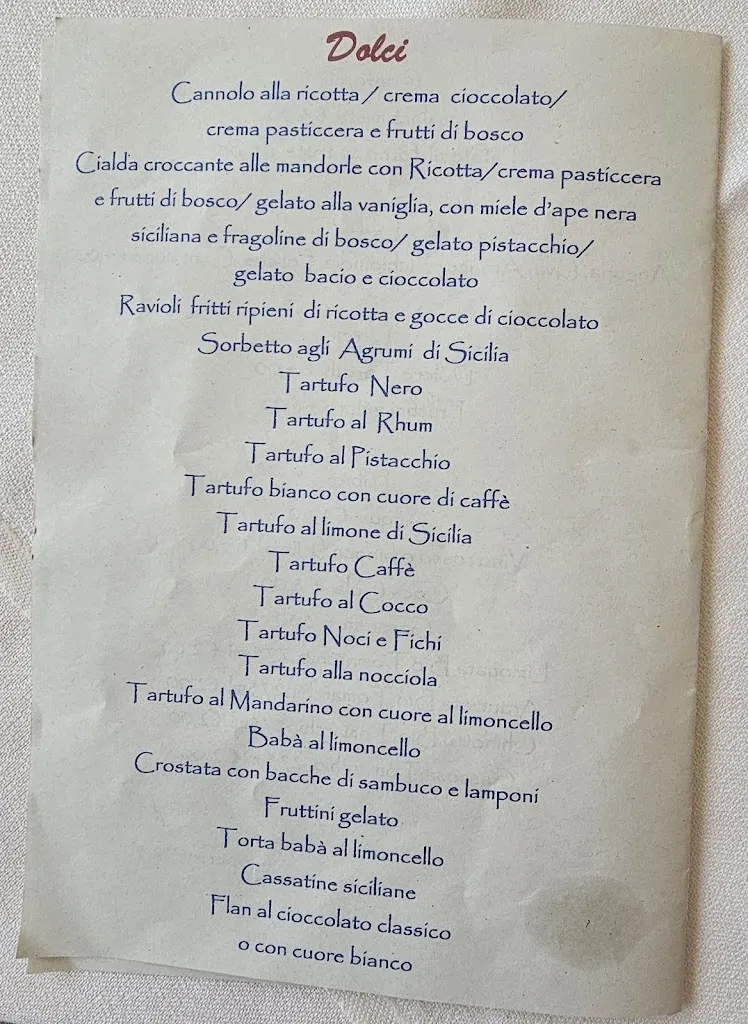 Dolci
Cannolo alla ricotta / crema cioccolato/
crema pasticcera e frutti di bosco
Cialda croccante alle mandorle con Ricotta/crema pasticcera
e frutti di bosco/ gelato alla vaniglia, con miele d'ape nera
siciliana e fragoline di bosco/ gelato pistacchio/
gelato bacio e cioccolato
Ravioli fritti ripieni di ricotta e gocce di cioccolato
Sorbetto agli Agrumi di Sicilia
Tartufo Nero
Tartufo al Rhum
Tartufo al Pistacchio
Tartufo bianco con cuore di caffè
Tartufo al limone di Sicilia
Tartufo Caffè
Tartufo al Cocco
Tartufo Noci e Fichi
Tartufo alla nocciola
Tartufo al Mandarino con cuore al limoncello
Babà al limoncello
Crostata con bacche di sambuco e lamponi
Fruttini gelato
Torta babà al limoncello
Cassatine siciliane
Flan al cioccolato classico
o con cuore bianco